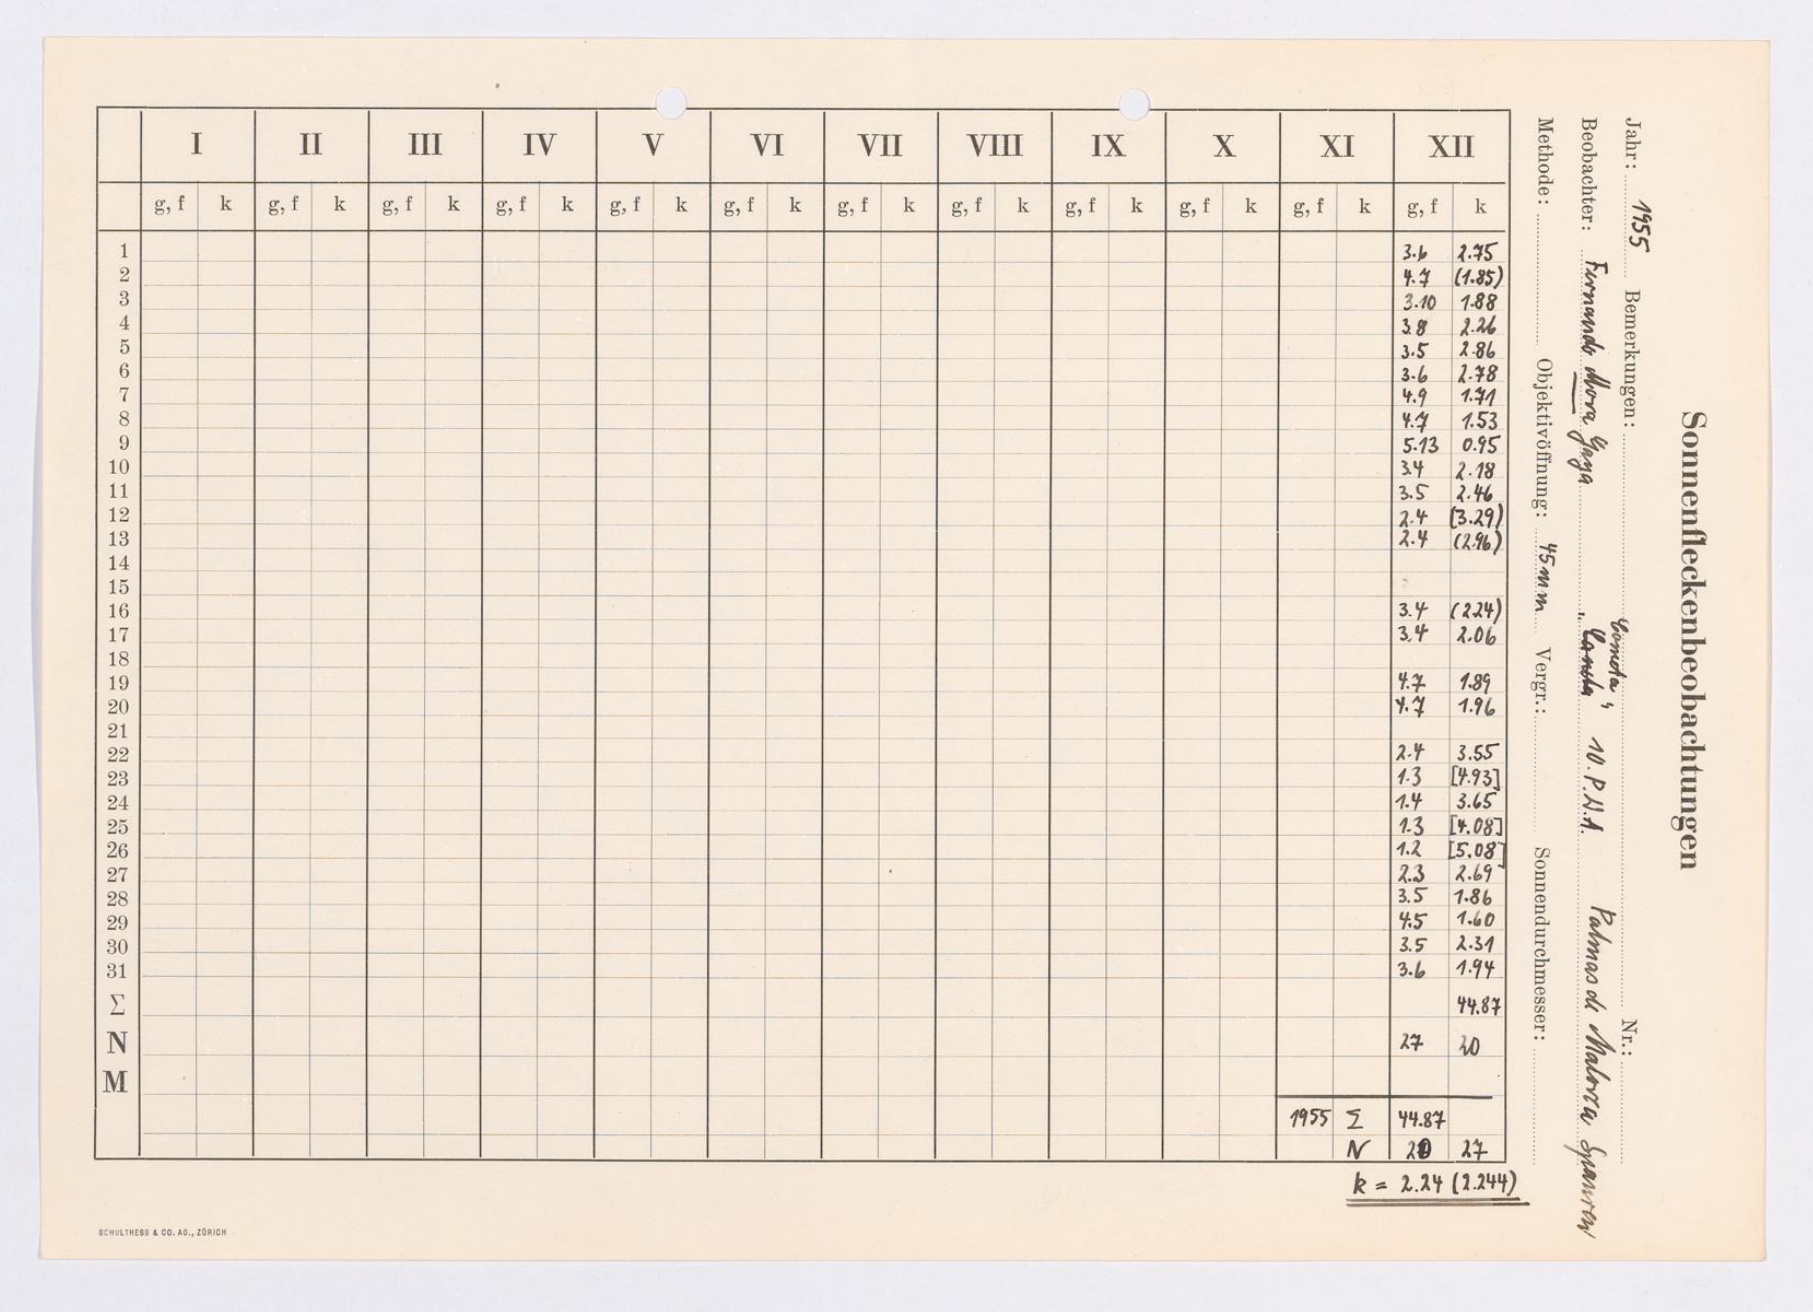 Sonnenfleckenbeobachtungen
Jahr: 1955 Bemerkungen: Nr.:
Beobachter: Fernando Mora Gaya " Cometa " 10. P.N.A. Palmas de Malorca Spanien
Methode: Objektivöffnung: 45mm Vergr.: Sonnendurchmesser:
I II III IV V VI VII VIII IX X XI XII
g, f k g, f k g, f k g, f k g, f k g, f k g, f k g, f k g, f k g, f k g, f k g, f k
1 3.6 2.75
2 4.7 (1.85)
3 3.10 1.88
4 3.8 2.26
5 3.5 2.86
6 3.6 2.78
7 4.9 1.71
8 4.7 1.53
9 5.13 0.95
10 3.4 2.18
11 3.5 2.46
12 2.4 [3.29)
13 2.4 (2.96)
14
15
16 3.4 (2.24)
17 3.4 2.06
18
19 4.7 1.89
20 4.7 1.96
21
22 2.4 3.55
23 1.3 [4.93]
24 1.4 3.65
25 1.3 [4.08]
26 1.2 [5.08]
27 2.3 2.69
28 3.5 1.86
29 4.5 1.60
30 3.5 2.31
31 3.6 1.94
Σ 44.87
N 27 20
M
1955 Σ 44.87
N 20 27
k = 2.24 (2.244)
SCHULTHESS & CO. AG., ZÜRICH